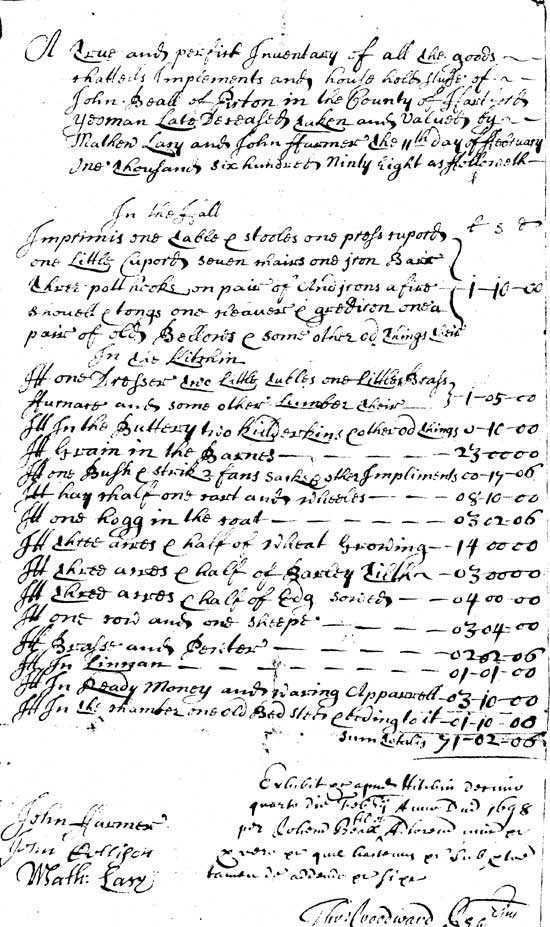 A True and perfirt Inventary of all the goods
chattells Implements and house hold stuffe of
John Beall of Pirton in the County of Hartford
yeoman Late Decreased taken and valued by
Mathew Lary and John Harmer the 11th day of February
One thousand six hundred Ninty Eight as ffolloweth
In the Hall
£ s d
Imprimis one table & stooles one press cupord
one Little Cupord seven chairs one Iron Barr
three pott hookes on pair of Andirons a fire
shovell & tongs one cleaver & grediron one
pair of old Bellows & some other od things their
1-10-00
In the Kitchin
It one Dresser two Little tables one Little Brass
Furnace and some other Lumber their 1-05-00
It In the Buttery two Kilderkins & other od things 0-10-00
It Grain in the Barnes 23 00 00
It one Bush & strik 2 fans sacks & other Impliments 00-17-06
It hay chaff one cart and wheeles 08-10-00
It one hogg in the coat 03 02-06
It three acres & half of wheat Growing 14 00 00
It three acres & half of Barley Tilth 03 00 00
It three acres & half of Edg sowed 04 00 00
It one cow and one sheepe 03 04-00
It Brasse and Peuter 02 02-06
It In Linnan 01-01-00
It In Ready Money and waring Apparrell 03-10-00
It In the chamber one old Bed sted & beding to it 01-10 00
sum totalis 71-02-06
Exhibit apud Hitchin decimo
quarto die Anno Dni 1698
per
John Harmer
John
Math: Lary
Tho: Woodward